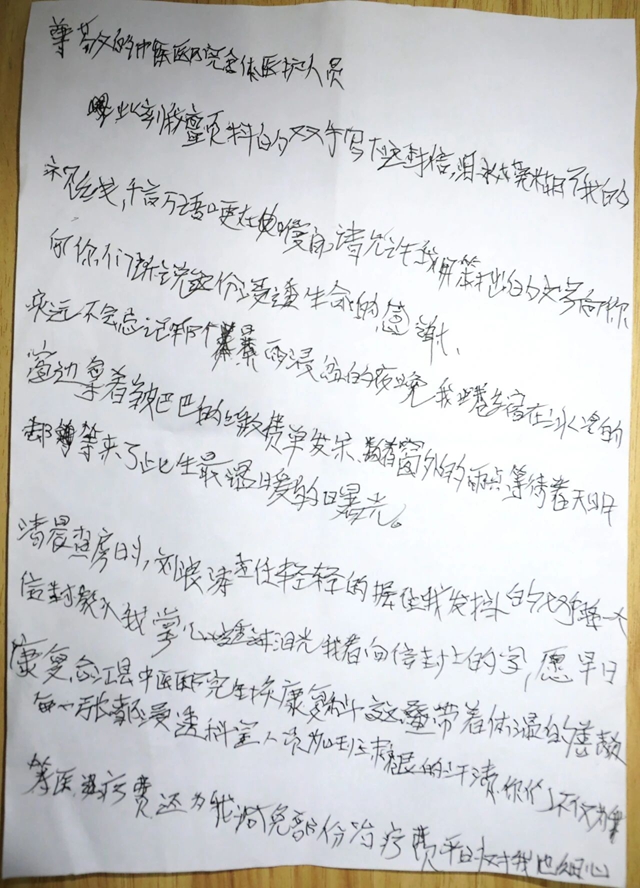 尊敬的中医医院全体医护人员
此刻我颤抖的双手写下这封信,泪水模糊了我的
视线,千言万语哽在喉间,请允许我用笨拙的文字向你
向你们诉说这份浸透生命的感谢、
永远不会忘记那个暴雨浸盆的夜晚我蜷缩在冰凉的
窗边拿着皱巴巴的缴费单发呆、数着窗外的雨点等待着天明
却等来了此生最温暖的曙光。
清晨查房时,刘浪涛主任轻轻的握住我发抖的双手
信封塞入我掌心透过泪光我看向信封上的字,愿早日
康复 县中医医院生 康复科 这叠带着体温的善款
每一张都浸透科室人员加班 的汗渍你们不仅为我
筹医疗费还为我减免部份治疗费平日对我也细心